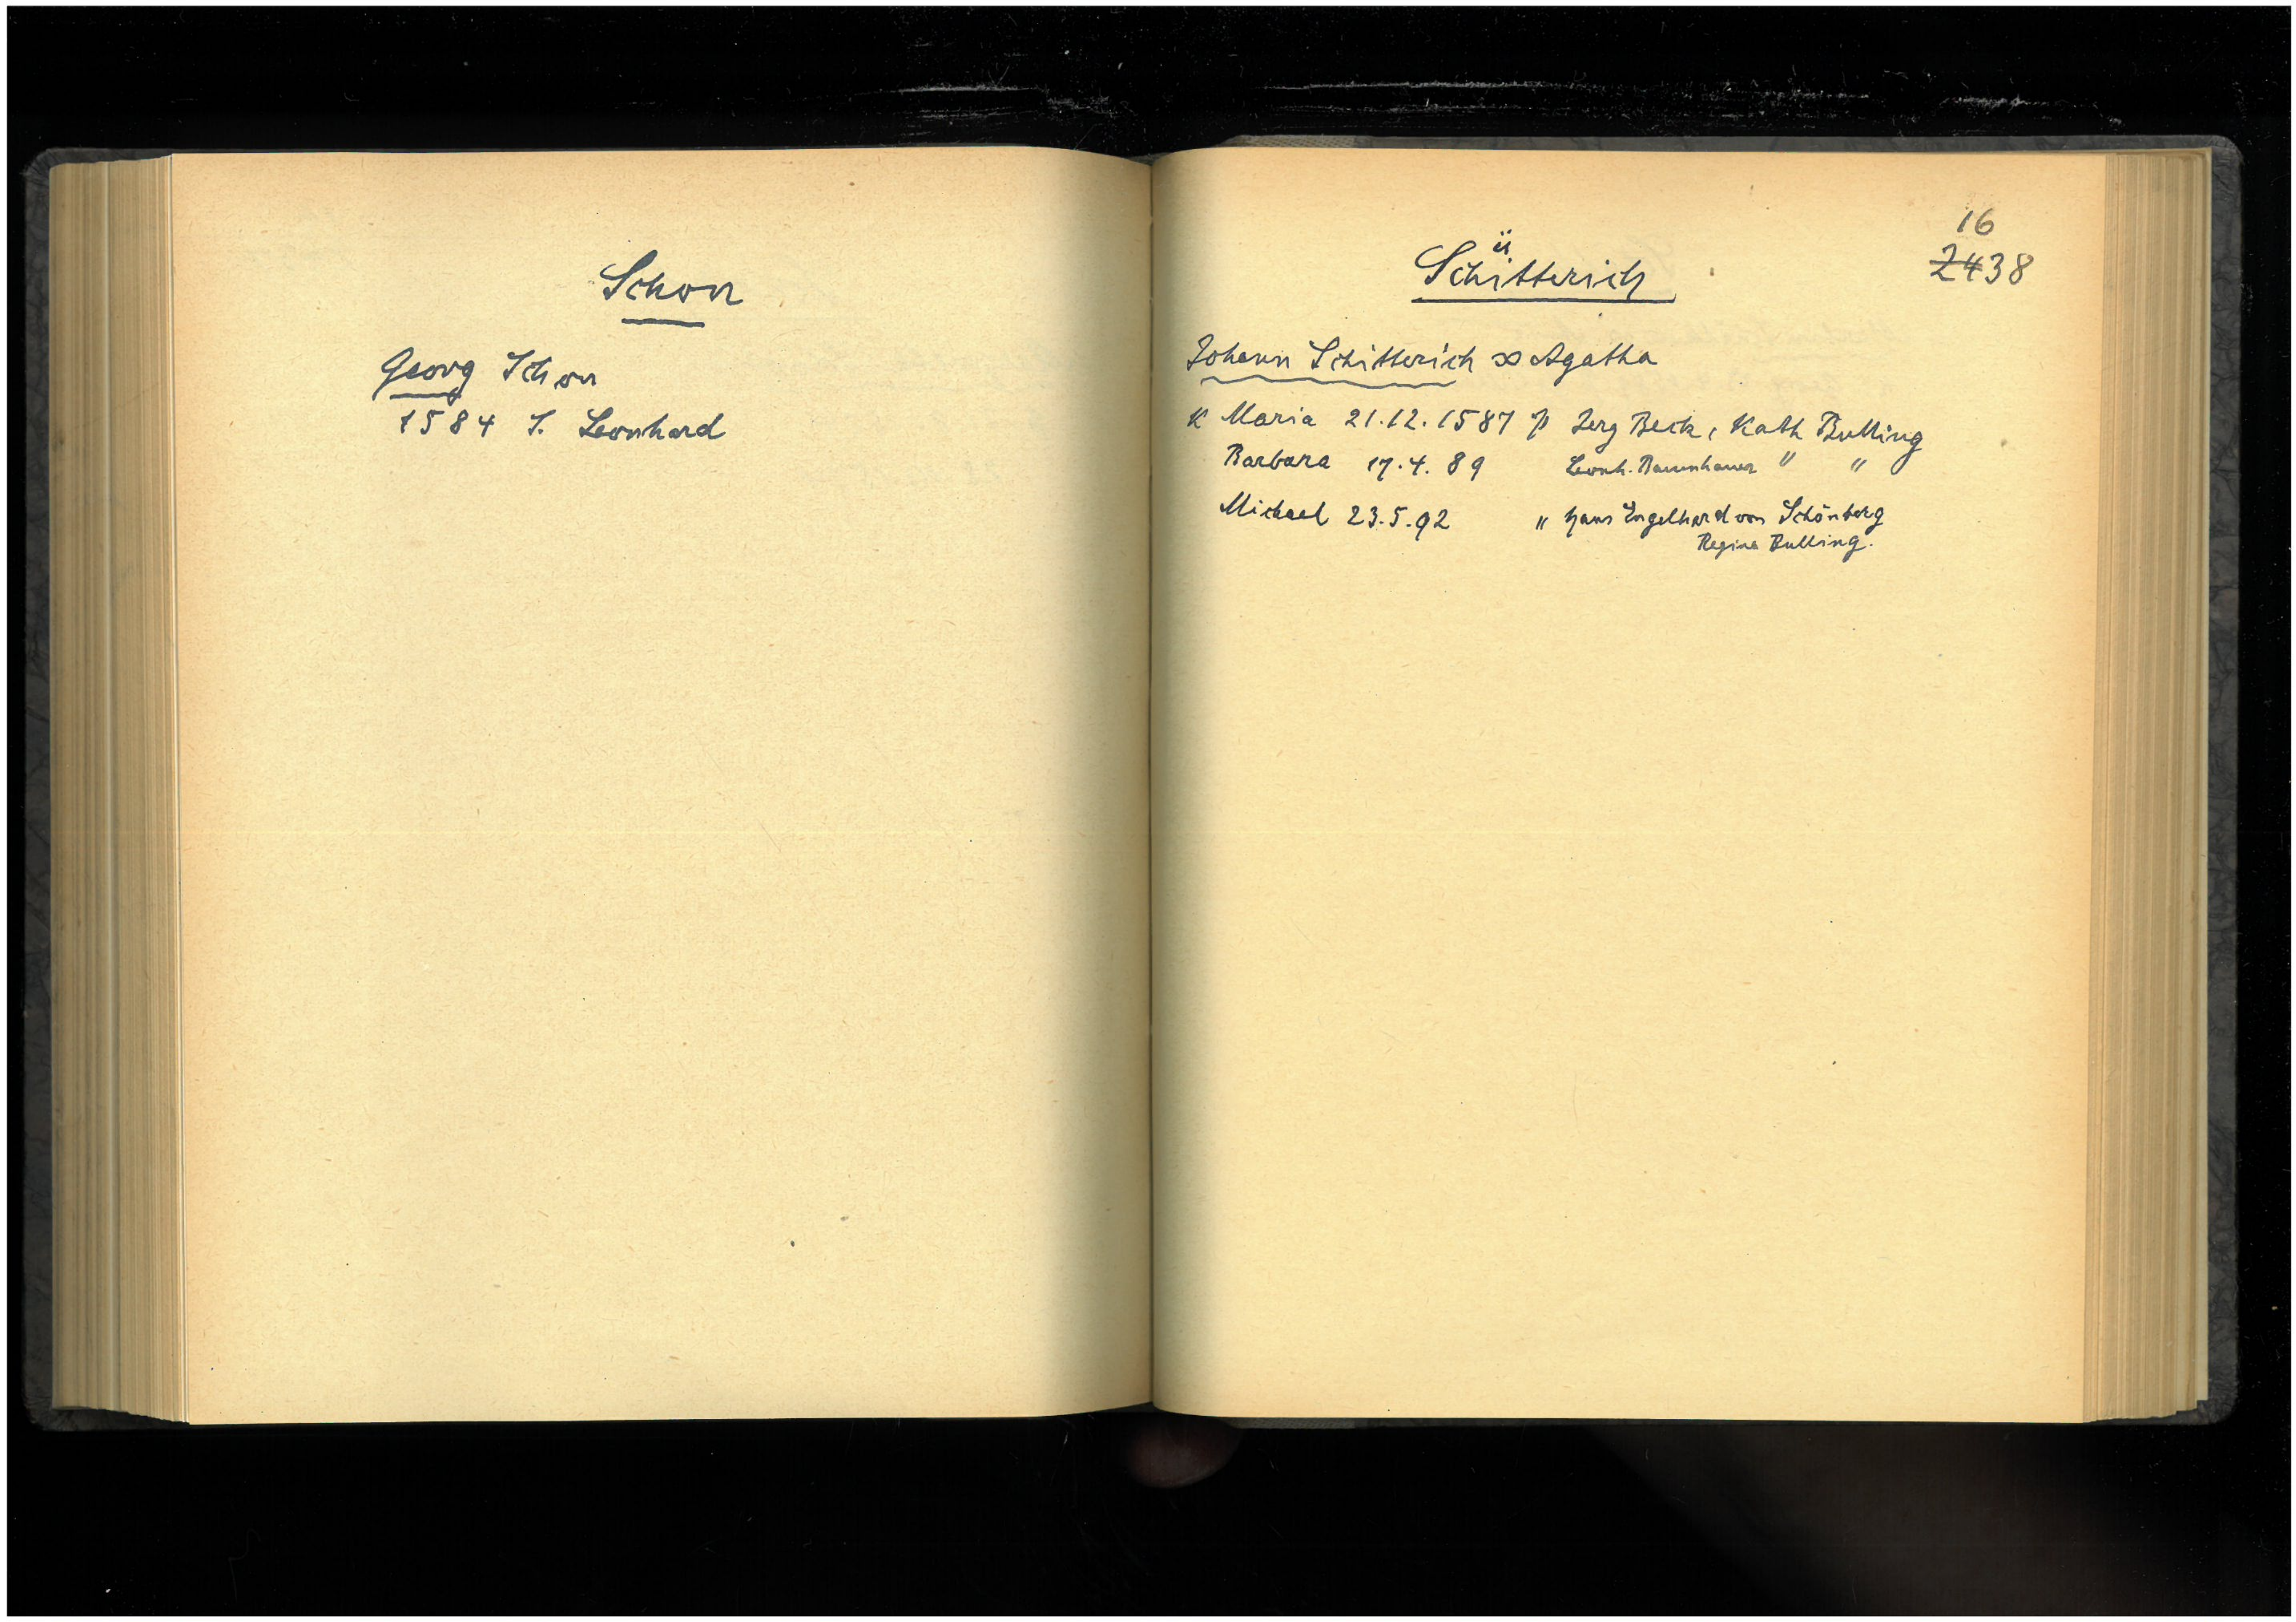 Schon
Georg Schon
1584 S. Leonhard
16
2438
ü
Schitterich
Johann Schitterich ∞ Agatha
K Maria 21.12.1587 P Jerg Beck, Kath Bulling
Barbara 17.4.89 Leonh. Baumhauer " "
Michael 23.5.92 " Hans Engelhard von Schönberg
Regina Bulling.